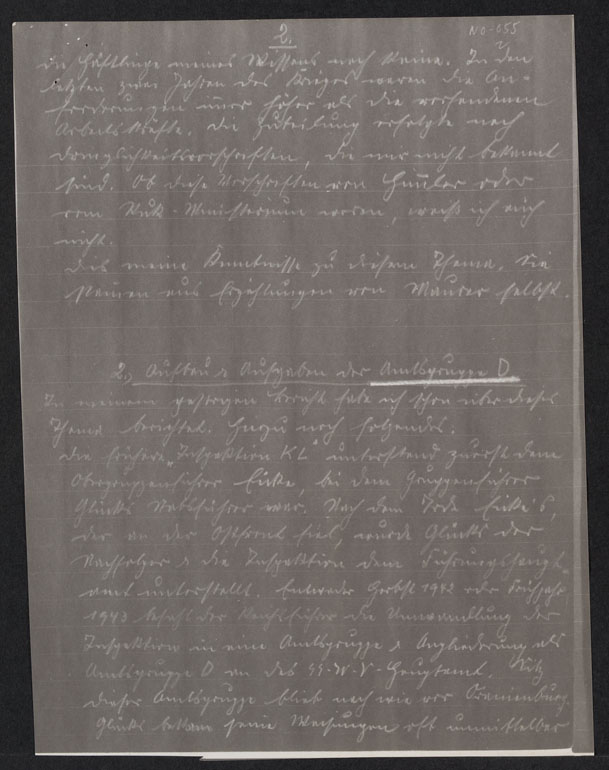 2.
NO-055
die Häftlinge meines Wissens nach keine. In den
letzten zwei Jahren des Krieges waren die An-
forderungen immer höher als die vorhandenen
Arbeitskräfte. Die Zuteilung erfolgte nach
Dringlichkeitsvorschriften, die mir nicht bekannt
sind. Ob diese Vorschriften von Himmler oder
vom RuK-Ministerium waren, weiß ich auch
nicht.
Das meine Kenntnisse zu diesem Thema. Sie
stammen aus Erzählungen von Maurer selbst.
2.) Aufbau & Aufgaben der Amtsgruppe D
In meinem gestrigen Bericht habe ich schon über dieses
Thema berichtet. Hierzu noch folgendes.
Die frühere „Inspektion KL" unterstand zuerst dem
Obergruppenführer Eicke, bei dem Gruppenführer
Glücks Stabsführer war. Nach dem Tode Eicke's,
der an der Ostfront fiel, wurde Glücks der
Nachfolger & die Inspektion dem Führungshaupt-
amt unterstellt. Entweder Herbst 1942 oder Frühjahr
1943 befahl der Reichsführer die Umwandlung der
Inspektion in eine Amtsgruppe & Angliederung als
Amtsgruppe D an das SS-W-V-Hauptamt. Sitz
dieser Amtsgruppe blieb nach wie vor Oranienburg.
Glücks bekam seine Weisungen oft unmittelbar